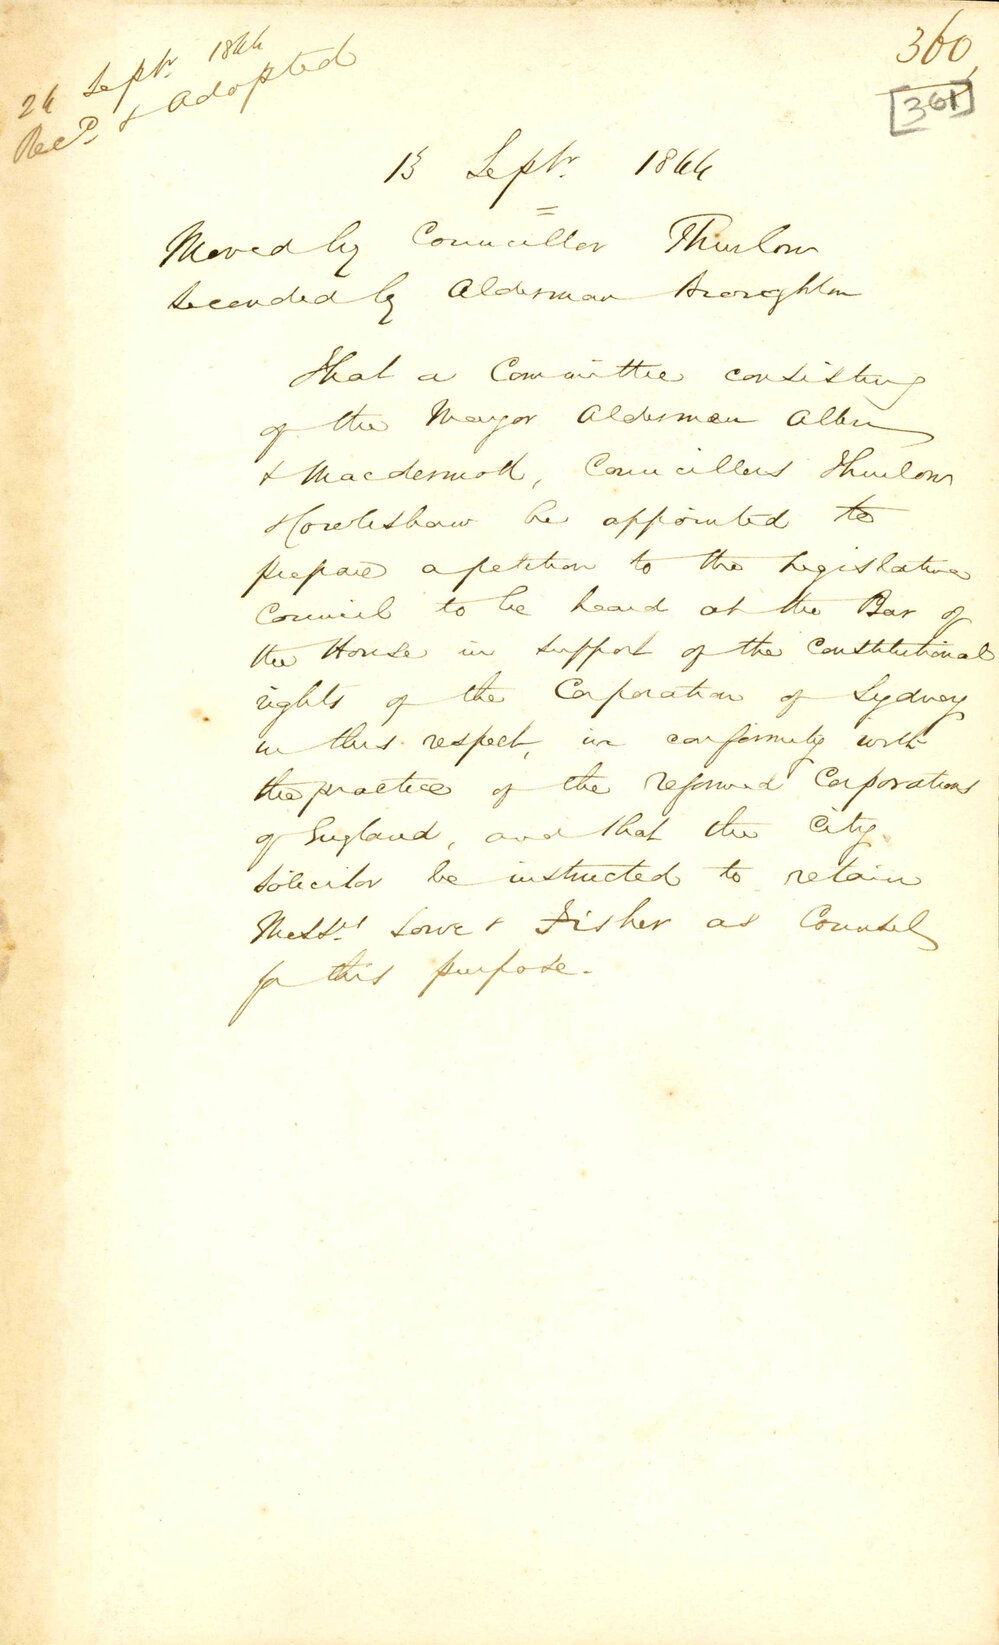 24 Septr. 1844
Recd. & Adopted
360
[361]
13 Septr. 1844
Moved by Councillor Thurlow
Seconded by Alderman Broughton
That a Committee consisting
of the Mayor Alderman Allen
& Macdermott, Councillors Thurlow
be appointed to
prepare a petition to the Legislative
Council to be heard at the Bar of
the House in support of the Constitutional
rights of the Corporation of Sydney
in this respect, in conformity with
the practice of the reformed Corporations
of England, and that the City
Solicitor be instructed to retain
Messrs. Lowe & Fisher as Counsel
for this purpose.